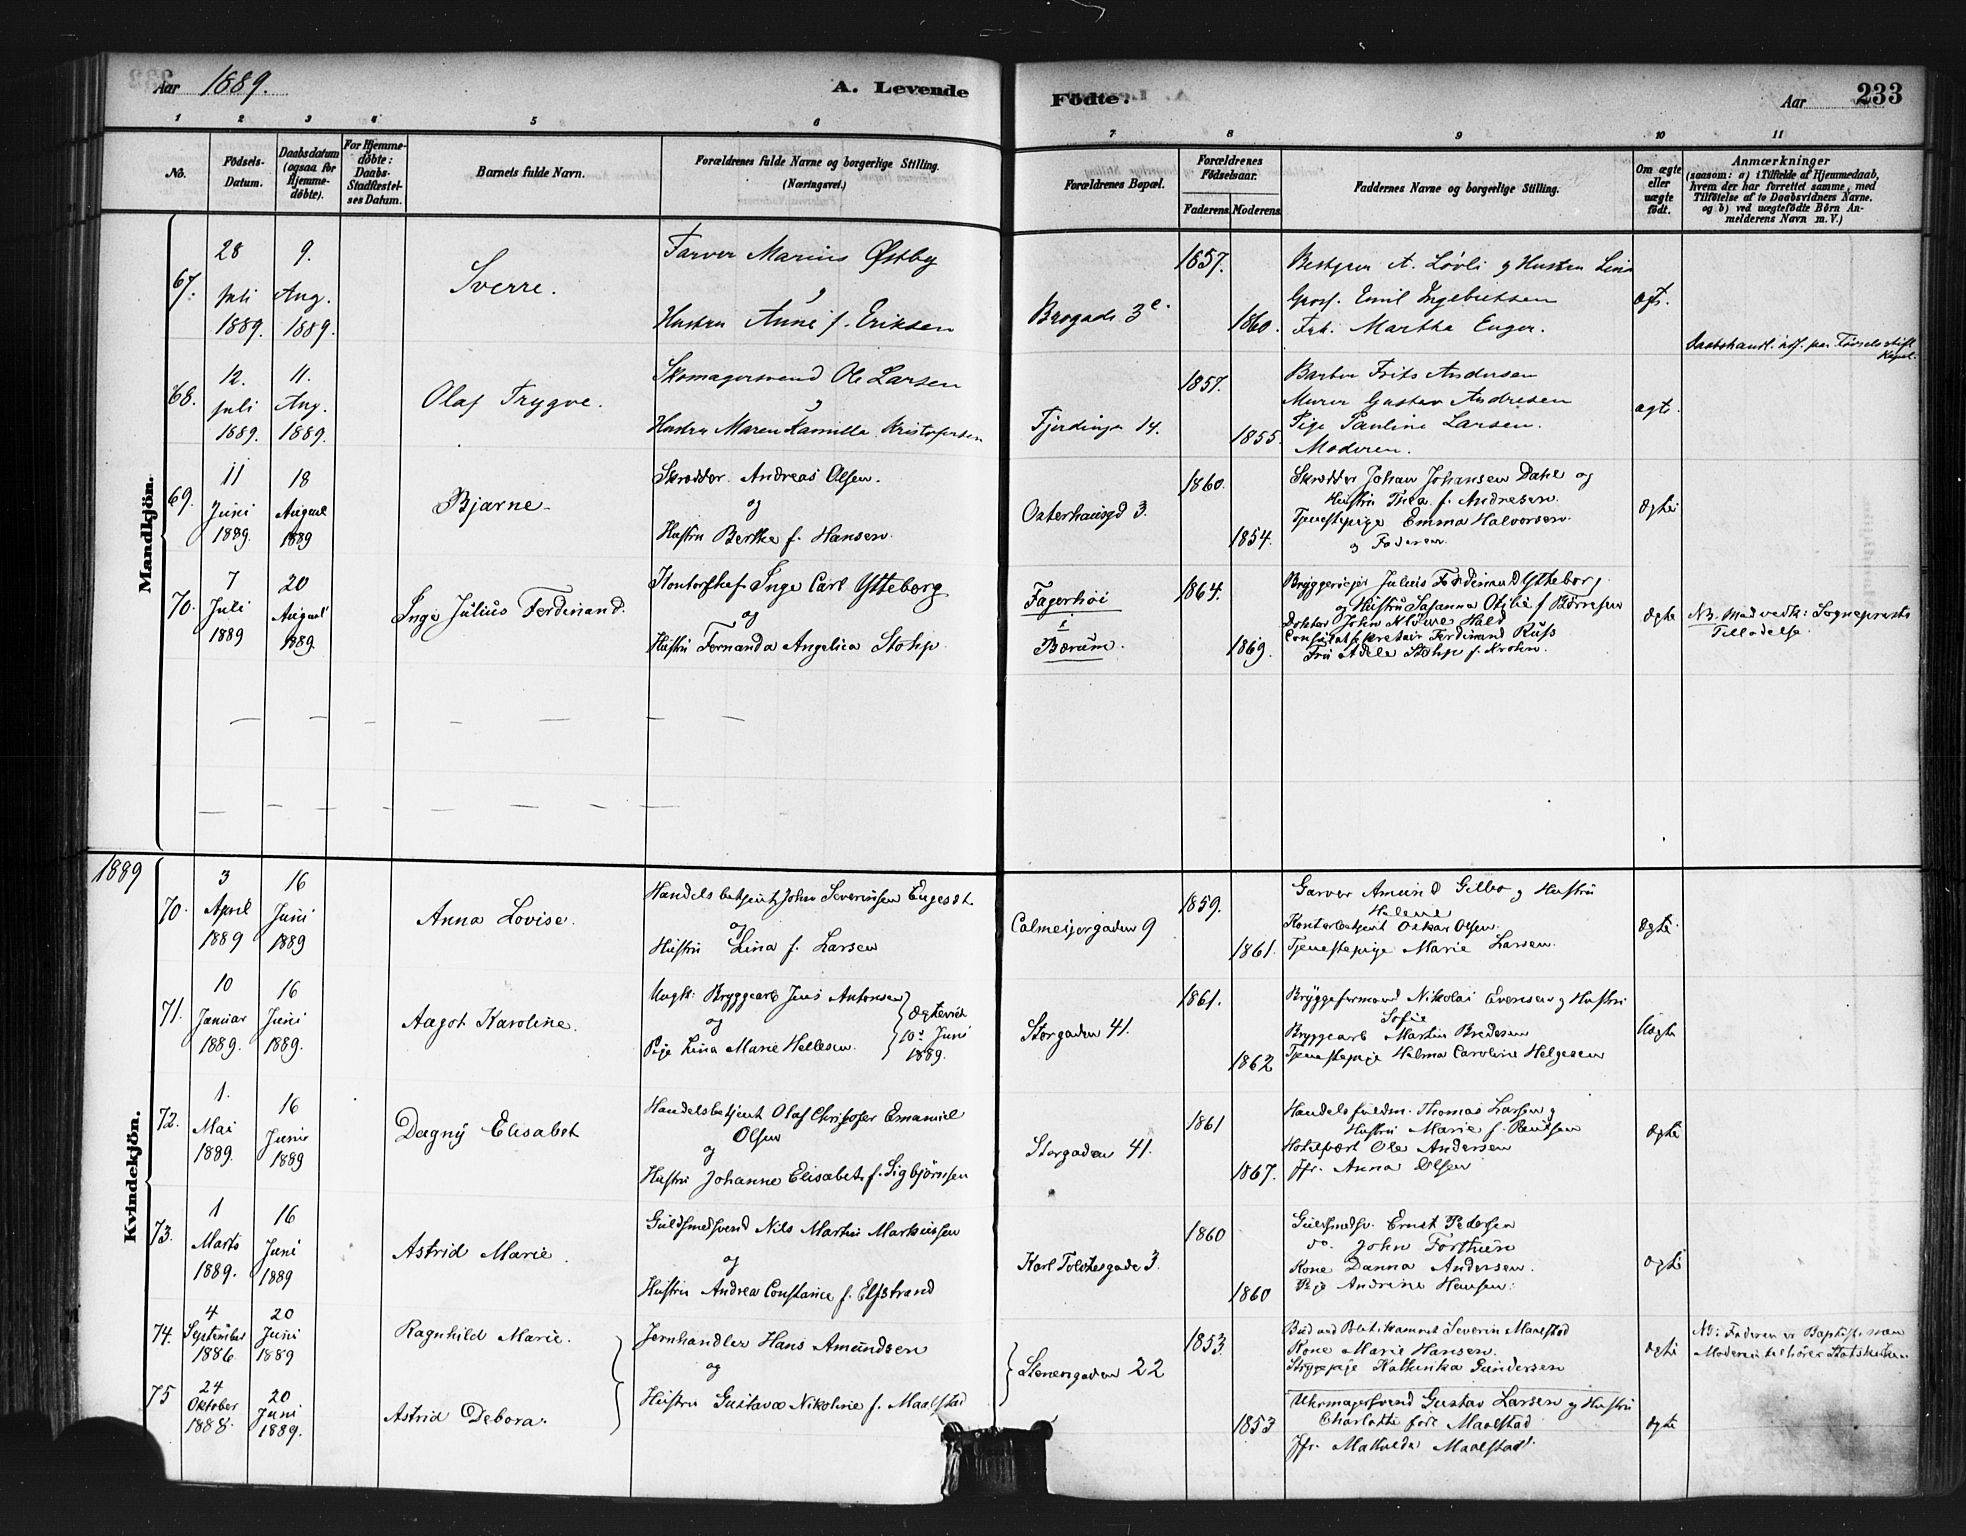 Aar 1889.
A. Levende
Födte.
Aar
233
1 2 3 4 5 6 7 8 9 10 11
No.
Födsels-
Datum.
Daabsdatum
(ogsaa for
Hjemme-
döbte).
For Hjemme-
döbte:
Daabs-
Stadfæstel-
ses Datum.
Barnets fulde Navn.
Forældrenes fulde Navne og borgerlige Stilling.
(Næringsvei.)
Forældrenes Bopæl.
Forældrenes
Födselsaar.
Faderens. Moderens.
Faddernes Navne og borgerlige Stilling.
Om ægte
eller
uægte
födt.
Anmærkninger
(saasom: a) i Tilfælde af Hjemmedaab,
hvem der har forrettet samme, med
Tilföielse af to Daabsvidners Navne.
og b) ved uægtefödte Börn An-
melderens Navn m. V.)
Mandkjön.
67.
28
Juli
1889.
9.
Aug.
1889.
Sverre.
Farver Marius Østby
og
Hustru Anne f. Eriksen
Brogade 3c.
1857.
1860.
A. Løvli og Hustru Lina
Gross. Emil Ingebretsen
Frk. Martha Enger.
ægte.
Daabshandl. udf. paa Fødselsstift
Kapel.
68.
12.
Juli
1889.
11.
Aug.
1889.
Olaf Trygve.
Skomagersvend Ole Larsen
og
Hustru Maren Kamilla Kristofersen
Fjerdingen 14.
1857.
1855.
Barber Frits Andersen
Murer Gustav Andresen
Pige Pauline Larsen.
Moderen.
ægte.
69.
11
Juni
1889.
18
August
1889
Bjarne
Skrædder Andreas Olsen.
og
Hustru Berthe f. Hansen
Osterhausgd 3.
1860.
1854.
Skrædder Johan Johansen Dahl og
Hustru Thea f. Andresen
Tjenestepige Emma Halvorsen
og Faderen
Ægte
70.
7
Juli
1889
20
August
1889
Inge Julius Ferdinand.
Kontorchef Inge Carl Ytteborg
og
Hustru Fernanda Angelica Stolp
Fagerhöi
i
Bærum.
1864.
1869.
Bryggerieier Julius Ferdinand Ytteborg
og Hustru Susanna Otilie f Børresen
Doktor John Hald
Consulatssekretair Ferdinand Russ
Fru Adele Stolp f. Krohn.
Ægte
NB. Med vedk: Sognepræsts
Tilladelse.
Kvindekjön.
1889
70.
3
April
1889
16
Juni
1889
Anna Lovise.
Handelsbetjent John Severinsen Engeset
og
Hustru Lina f. Larsen
Calmeijergaden 9
1859.
1861.
Garver Amund Gilbo og Hustru
Helene
Kontorbetjent Oskar Olsen.
Tjenestepige Marie Larsen.
Ægte
71.
10
Januar
1889.
16
Juni
1889.
Aagot Karoline.
Ungk: Bryggearb Jens Antonsen
og
Pige Lina Marie Hellesen.
Ægteviet
10de Juni
1889.
Storgaden 41.
1861.
1862
Bryggeformand Nikolai Evensen og Hustru
Sofie
Bryggearb Martin Bredesen
Tjenestepige Helma Caroline Helgesen
Uægte
72.
1.
Mai
1889.
16
Juni
1889
Dagny Elisabet
Handelsbetjent Olaf Christofer Emanuel
Olsen
og
Hustru Johanne Elisabet f. Sigbjörnsen
Storgaden 41.
1861
1867.
Handelsfuldm. Thomas Larsen og
Hustru Marie f. Paulsen
Hotelvært Ole Andersen
Jfr. Anna Olsen
Ægte
73.
1
Marts
1889.
16
Juni
1889
Astrid Marie.
Guldsmedsvend Nils Martin Markussen
og
Hustru Andrea Constance f. Elfstrand
Karl Tolchesgade 3.
1860
1860
Guldsmedsv. Ernst Pedersen
do. John Forthun
Kone Danna Andersen.
Pige Andrine Hansen.
Ægte
74.
4
September
1886.
20
Juni
1889
Ragnhild Marie.
Jernhandler Hans Amundsen
og
Hustru Gustava Nikoline f. Maalstad
Stenersgaden 22
1853.
1853
Severin Maalstad
Kone Marie Hansen.
Strygepige Kathinka Gundersen
Ægte
NB: Faderen er Baptist men
Moderen tilhører Statskirken.
75
24
Oktober
1888.
20
Juni
1889.
Astrid Debora.
Uhrmagersvend Gustav Larsen og Hustru
Charlotte født Maalstad
Jfr. Mathilda Maalstad.
Ægte